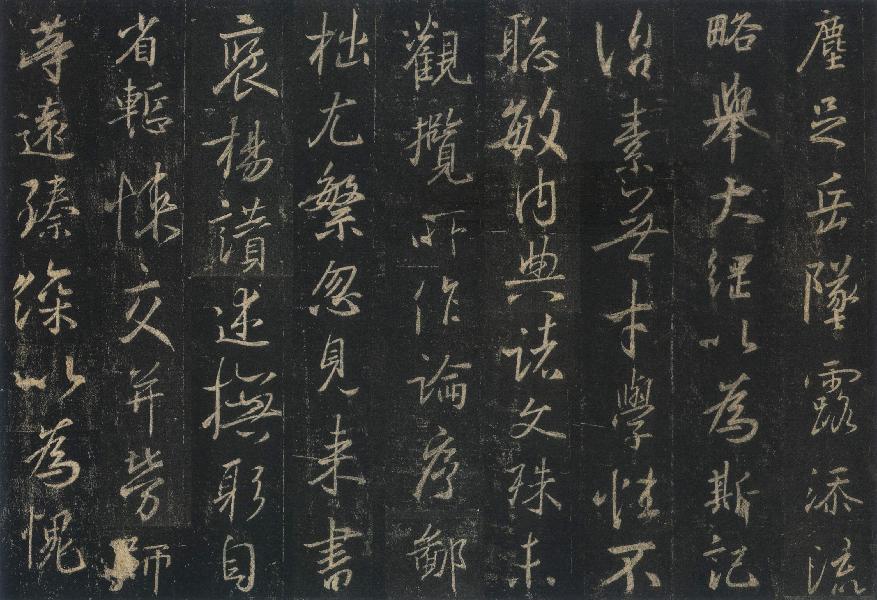 塵足岳墜露添流
略舉大綱以為斯記
治素無才學性不
聰敏內典諸文殊未
觀攬所作論序鄙
拙尤繁忽見来書
褒揚讃述撫躬自
省慙悚交并勞師
等遠臻深以為愧